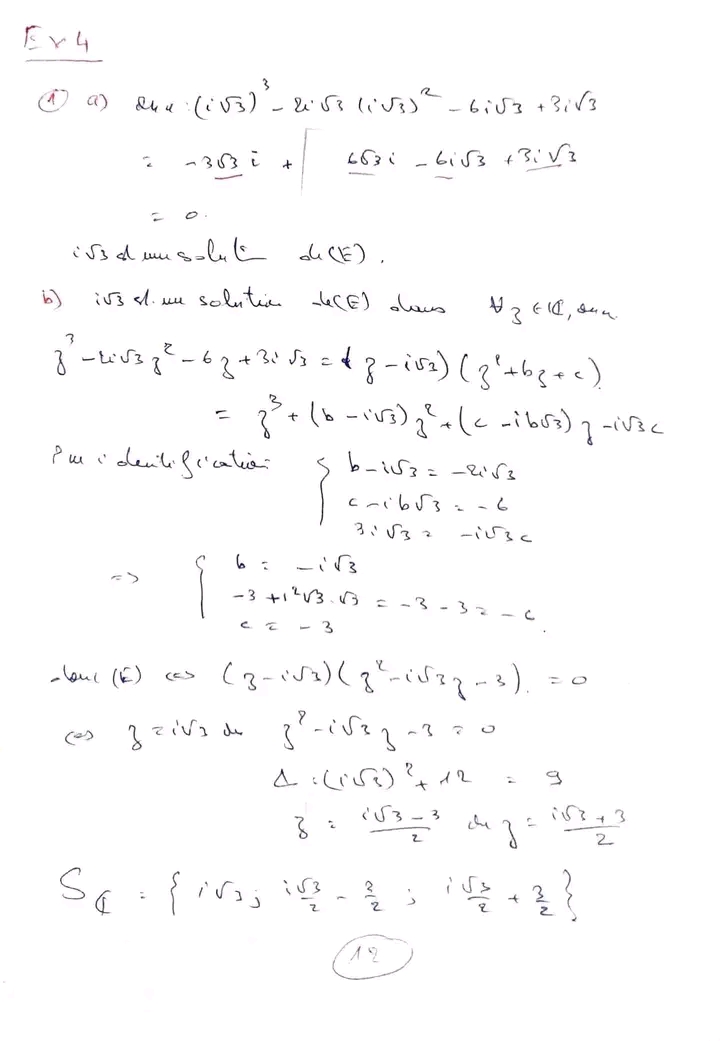 Ex 4
① a) on a : (i√3)³ - 2i√3 (i√3)² - 6i√3 + 3i√3
= -3√3 i + 6√3 i - 6i√3 + 3i√3
= 0.
i√3 est une solution de (E).
b) i√3 est une solution de (E) donc ∀ z ∈ ℂ, on a
z³ - 2i√3 z² - 6z + 3i√3 = (z - i√3) (z² + bz + c)
= z³ + (b - i√3) z² + (c - ib√3) z - i√3 c
Par identification
b - i√3 = -2i√3
c - ib√3 = -6
3i√3 = -i√3 c
=> b = -i√3
-3 + i²√3·√3 = -3 - 3 = - 6
c = -3
donc (E) <=> (z - i√3)(z² - i√3 z - 3) = 0
<=> z = i√3 ou z² - i√3 z - 3 = 0
Δ : (i√3)² + 12 = 9
z = (i√3 - 3)/2 ou z = (i√3 + 3)/2
S_ℂ = { i√3 ; i√3/2 - 3/2 ; i√3/2 + 3/2 }
12